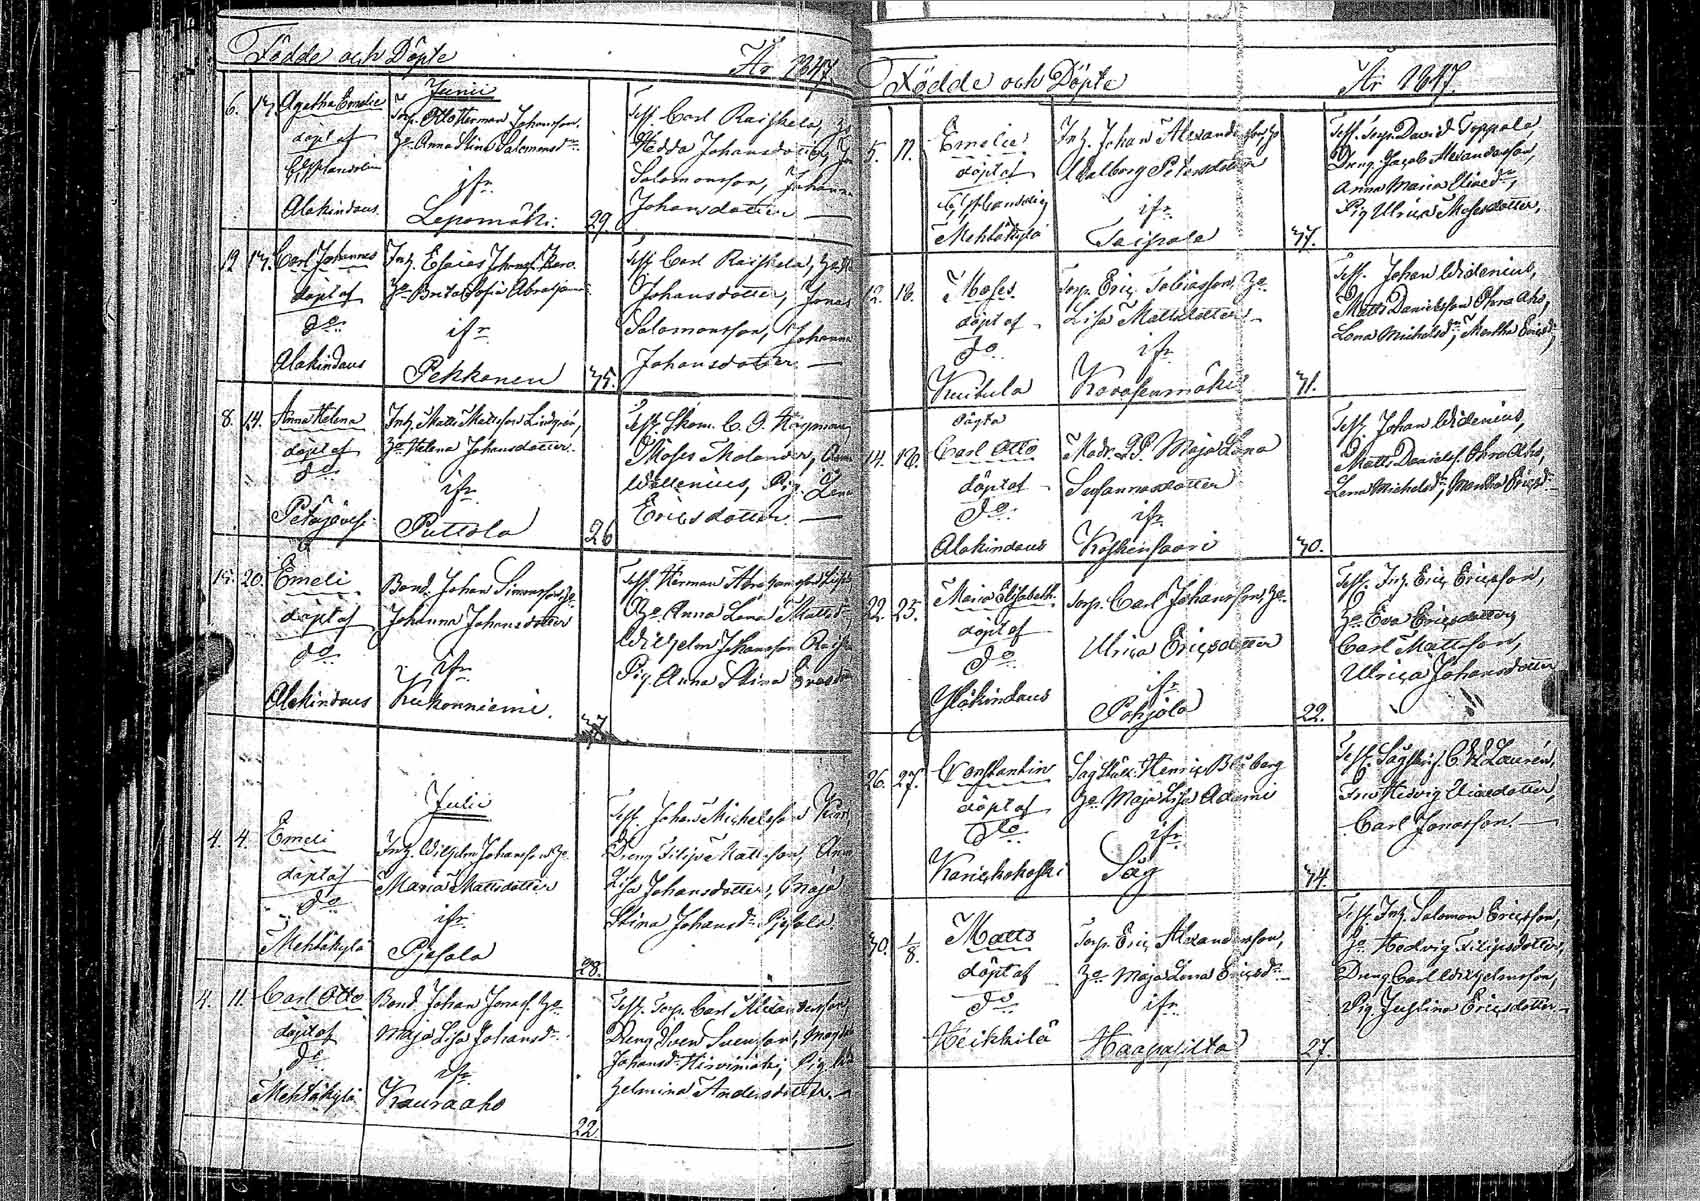 Födde och Döpte År 1847
Junii
6. 17. Agatha Emelie
döpt af
Alakindaus
Torp. Otto Herman Johansson,
Ho Anna Stina Salomonsdr
ifr
Lepomäki
29
Test. Carl Raiskela,
Hedda Johansdotter,
Salomonsson, Johanna
Johansdotter
12 17. Carl Johannes
döpt af
do
Alakindaus
Inh. Esaias
Ho Brita Sofia
ifr
Pekkonen
35.
Test. Carl Raiskela,
Johansdotter, Jonas
Salomonsson, Johanna
Johansdotter
8. 14. Anna Helena
döpt af
do
Petäjäves
Inh. Matts Mattsson Lindgren,
Ho Helena Johansdotter
ifr
Puttola
26
Test. Skom. C. O.
Moses Molander,
Wallenius, Pig. Lena
Ericsdotter
15. 20. Emeli
döpt af
do
Alakindaus
Bond. Johan Simonsson, Ho
Johanna Johansdotter
ifr
Kukonniemi.
Test. Herman Abrahamsson
Ho Anna Lena Matts
Wilhelm Johansson
Pig. Anna Stina
Julii
4. 4. Emeli
döpt af
do
Mehtäkylä
Inh. Wilhelm Johansson Ho
Maria Mattsdotter
ifr
Pjesala
28.
Test. Johan Michelsson
Dreng Filip Mattsson, Anna
Lisa Johansdotter, Maja
Stina Johansdr
4. 11. Carl Otto
döpt af
do
Mehtäkylä
Bond. Johan Jonass. Ho
Maja Lisa Johansdr
ifr
Kauraaho
22
Test. Torp. Carl Alexandersson,
Dreng Sven Svensson,
Johansdr Hirvimäki, Pig
Helmina Andersdotter
Födde och Döpte År 1847
5. 11. Emelie
döpt af
Mehtäkylä
Inh. Johan Alexandersson Ho
Walborg Petersdotter
ifr
Taipale
37.
Test. Torp. David Toppala,
Dreng Jacob Alexandersson,
Anna Maria
Pig Ulrica Mosesdotter,
12. 16. Moses
döpt af
do
Kuitula
Torp. Eric Tobiasson, Ho
Lisa Mattsdotter
ifr
Korosenmäki
31.
Test. Johan Widenius,
Matts Danielsson Ohra Aho,
Lena Michelsdr, Martha Ericsdr,
oägta
14. 16. Carl Otto
döpt af
do
Alakindaus
Modr. Maja Lena
Susannasdotter
ifr
Koskensaari
30.
Test. Johan Widenius,
Matts Daniels. Ohra Aho,
Lena Michelsdr, Martha Ericsdr
22. 25. Maria Elisabeth
döpt af
do
Yläkindaus
Torp. Carl Johansson, Ho
Ulrica Ericsdotter
ifr
Pohjola
22.
Test. Inh. Eric Ericsson,
Ho Eva Ericsdotter,
Carl Mattsson,
Ulrica Johansdotter
26. 27. Constantin
döpt af
do
Karichokoski
Henric Blåberg
Ho Maja Lisa Adami
ifr
Såg
34.
Test. Laurén,
Hedvig
Carl Jonasson.
30. 1/8. Matts
döpt af
do
Heikkilä
Torp. Eric Alexandersson,
Ho Maja Lena Ericsdr
ifr
Haapasilta
27.
Test. Inh. Salomon Ericsson,
Ho Hedvig Filipsdotter,
Dreng Carl Wilhelmsson,
Pig. Justina Ericsdotter